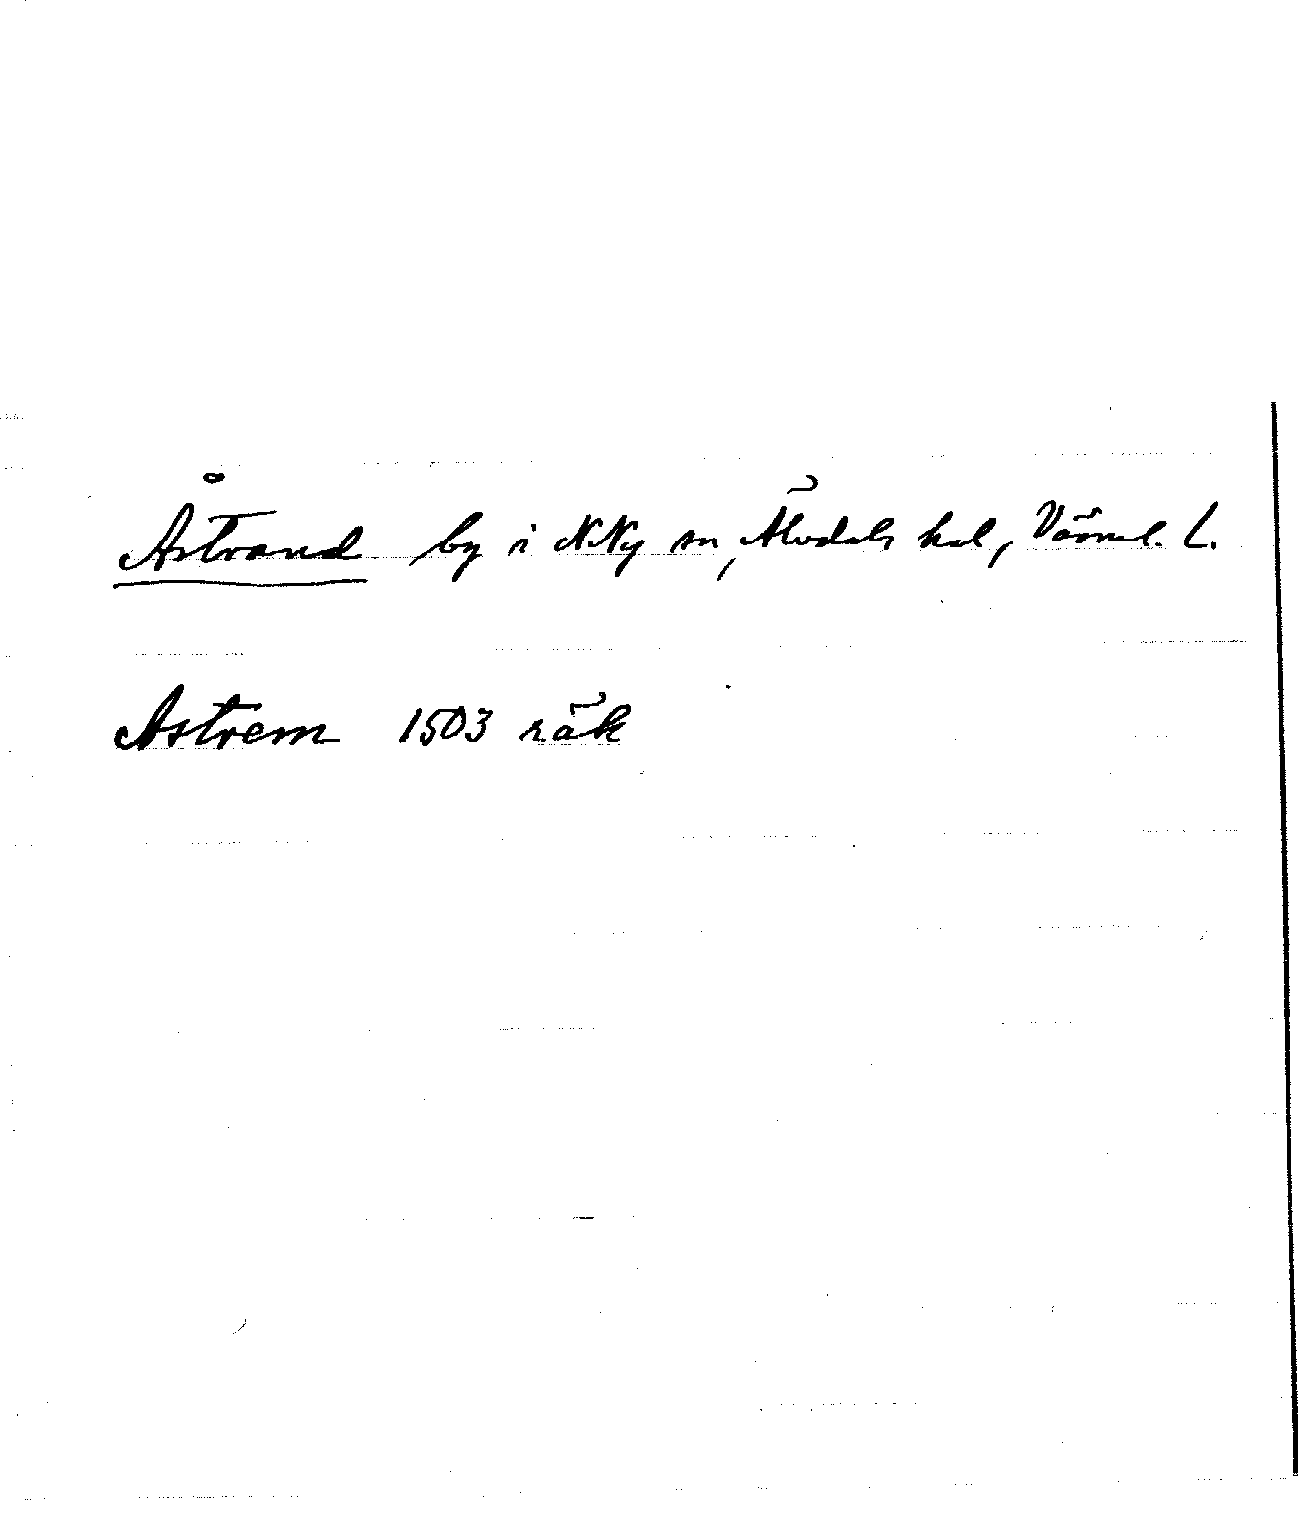 Åstrand by i N.Ny sn, Älvdals hd, Värml. L.
Astrem 1503 räk